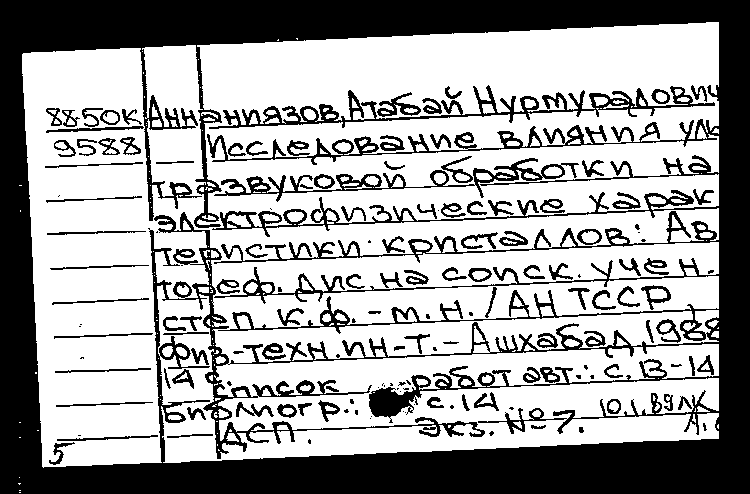 88-50К Аннаниязов, Атабай Нурмурадович
9588 Исследование влияния уль
тразвуковой обработки на
электрофизические харак
теристики кристаллов: Ав
тореф. дис. на соиск. учен.
степ. к.ф.-м.н. / АН ТССР,
Физ.-техн. ин-т. - Ашхабад, 1988
14 с. список работ авт.: с. 13-14
Библиогр.: с. 14
ДСП. Экз. № 7. 10.1.89
5